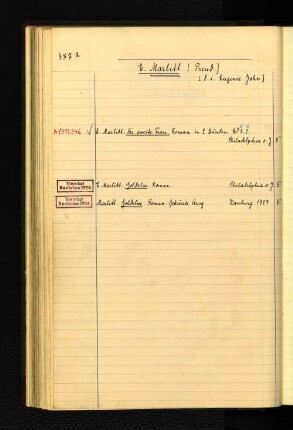 487a
E. Marlitt [Pseud.]
[d. i. Eugenie John]
E. Marlitt. Die zweite Frau. Roman in 2 Bänden.
Philadelphia o. J. 8°
Vermisst
Revision 1936
E. Marlitt. Goldelse. Roman. Philadelphia o. J. 8°
Vermisst
Revision 1936
Marlitt. Goldelse. Roman. Hamburg 1927 8°